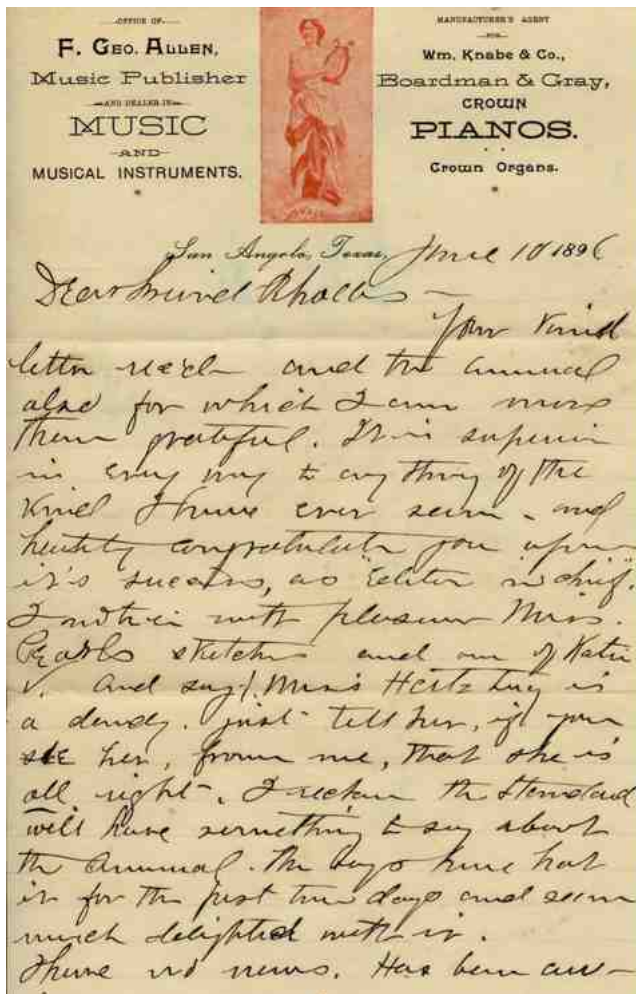 OFFICE OF
F. GEO. ALLEN,
Music Publisher
AND DEALER IN
MUSIC
AND
MUSICAL INSTRUMENTS.
MANUFACTURER'S AGENT
FOR
Wm. Knabe & Co.,
Boardman & Gray,
CROWN
PIANOS.
Crown Organs.
San Angelo, Texas, June 10 1896
Dear Friend Rhodes –
Your kind
letter rec'd and the annual
also for which I am more
than grateful. It is superior
in every way to any thing of the
kind I have ever seen – and
heartily congratulate you upon
it's success, as "Editor in chief".
I notice with pleasure Miss.
Pearls sketches and one of Katie
V. And say! Miss Hertzbug is
a dandy. just tell her, if you
see her, from me, that she is
all right –. I reckon the Standard
will have something to say about
the annual. The boys have had
it for the past two days and seem
much delighted with it.
I have no news. Has been